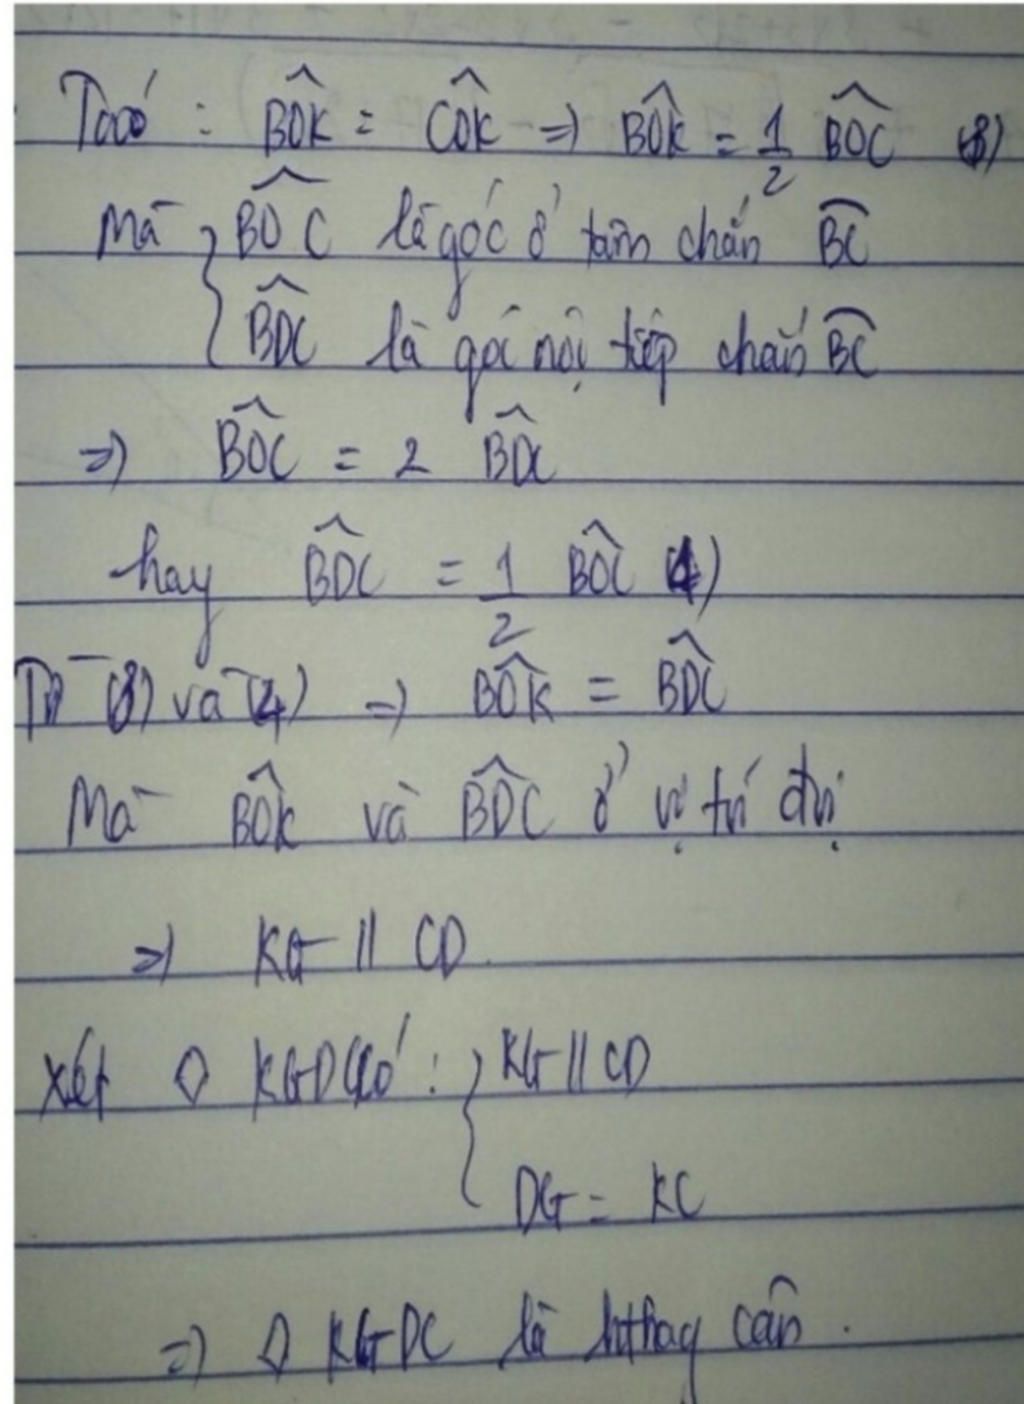 Ta có : \widehat{BOK} = \widehat{COK} => \widehat{BOK} = \frac{1}{2} \widehat{BOC} (3)
Mà { \widehat{BOC} là góc ở tâm chắn \overset{\frown}{BC}
\widehat{BDC} là góc nội tiếp chắn \overset{\frown}{BC}
=> \widehat{BOC} = 2 \widehat{BDC}
hay \widehat{BDC} = \frac{1}{2} \widehat{BOC} (4)
Từ (3) và (4) => \widehat{BOK} = \widehat{BDC}
Mà \widehat{BOK} và \widehat{BDC} ở vị trí đvị
=> KG // CD
Xét ◇ KGDC có : { KG // CD
DG = KC
=> ◇ KGDC là hthag cân .